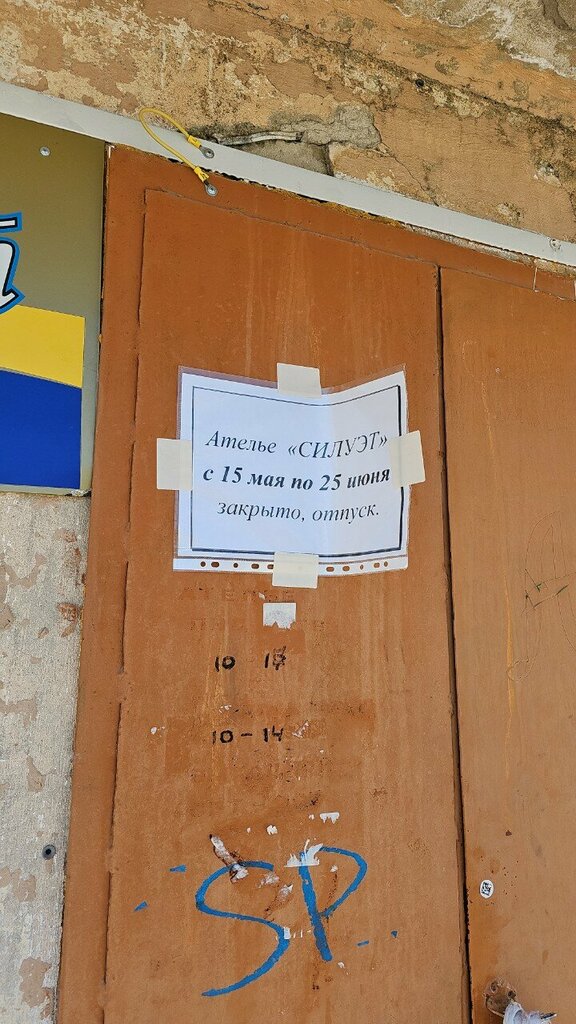 Ателье «СИЛУЭТ»
с 15 мая по 25 июня
закрыто, отпуск.
10 – 14
SP